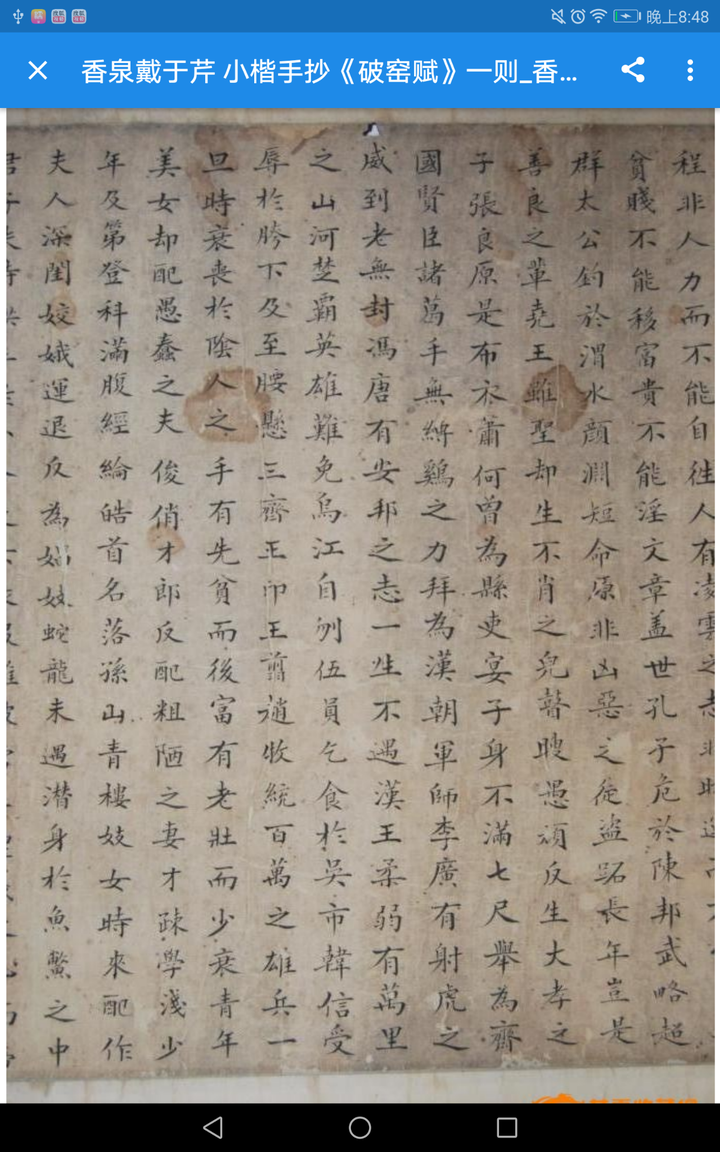 晚上8:48
香泉戴于芹 小楷手抄《破窑赋》一则_香...
程非人力而不能自徃人有凌雲之志非時
貧賤不能移富貴不能淫文章盖世孔子危於陳邦武略超
群太公釣於渭水顔淵短命原非凶惡之徒盜跖長年豈是
善良之輩堯王雖聖却生不肖之兒瞽瞍愚頑反生大孝之
子張良原是布衣蕭何曾為縣吏宴子身不滿七尺舉為齊
國賢臣諸葛手無縛鷄之力拜為漢朝軍師李廣有射虎之
威到老無封馮唐有安邦之志一生不遇漢王柔弱有萬里
之山河楚霸英雄難免烏江自刎伍員乞食於吳市韓信受
辱於胯下及至腰懸三齊王印王翦收統百萬之雄兵一
旦時衰喪於陰人之手有先貧而後富有老壯而少衰青年
美女却配愚蠢之夫俊俏才郎反配粗陋之妻才疎學淺少
年及第登科滿腹經綸皓首名落孫山青樓妓女時來配作
夫人深閨姣娥運退反為娼妓蛇龍未遇潜身於魚鱉之中